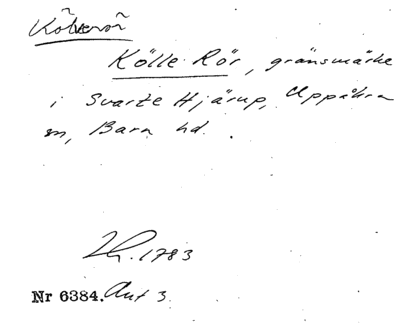 Kölle Rör, gränsmärke
i Svarte Hjärup, Uppåkra
sn, Bara hd.
1783
Nr 6384. Ant 3.